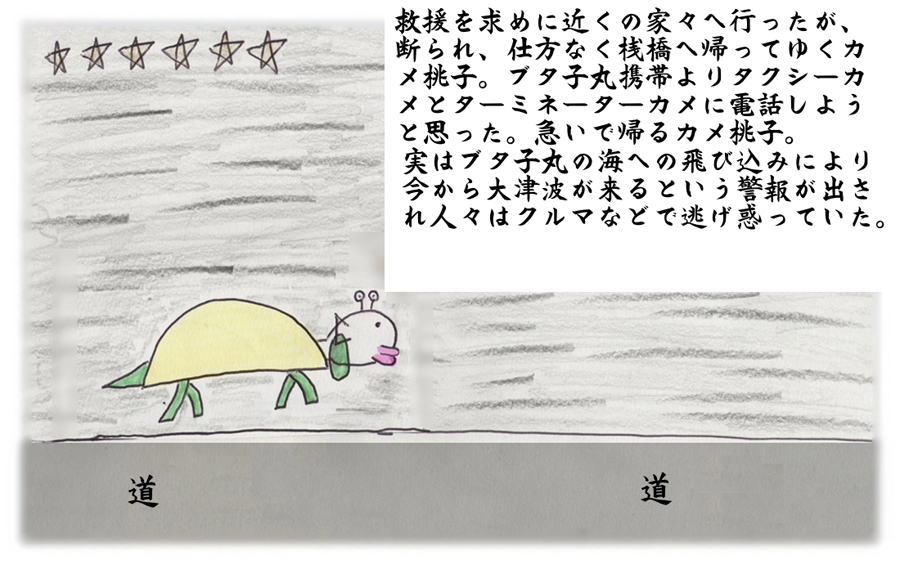 救援を求めに近くの家々へ行ったが、
断られ、仕方なく桟橋へ帰ってゆくカ
メ桃子。ブタ子丸携帯よりタクシーカ
メとターミネーターカメに電話しよう
と思った。急いで帰るカメ桃子。
実はブタ子丸の海への飛び込みにより
今から大津波が来るという警報が出さ
れ人々はクルマなどで逃げ惑っていた。
道
道